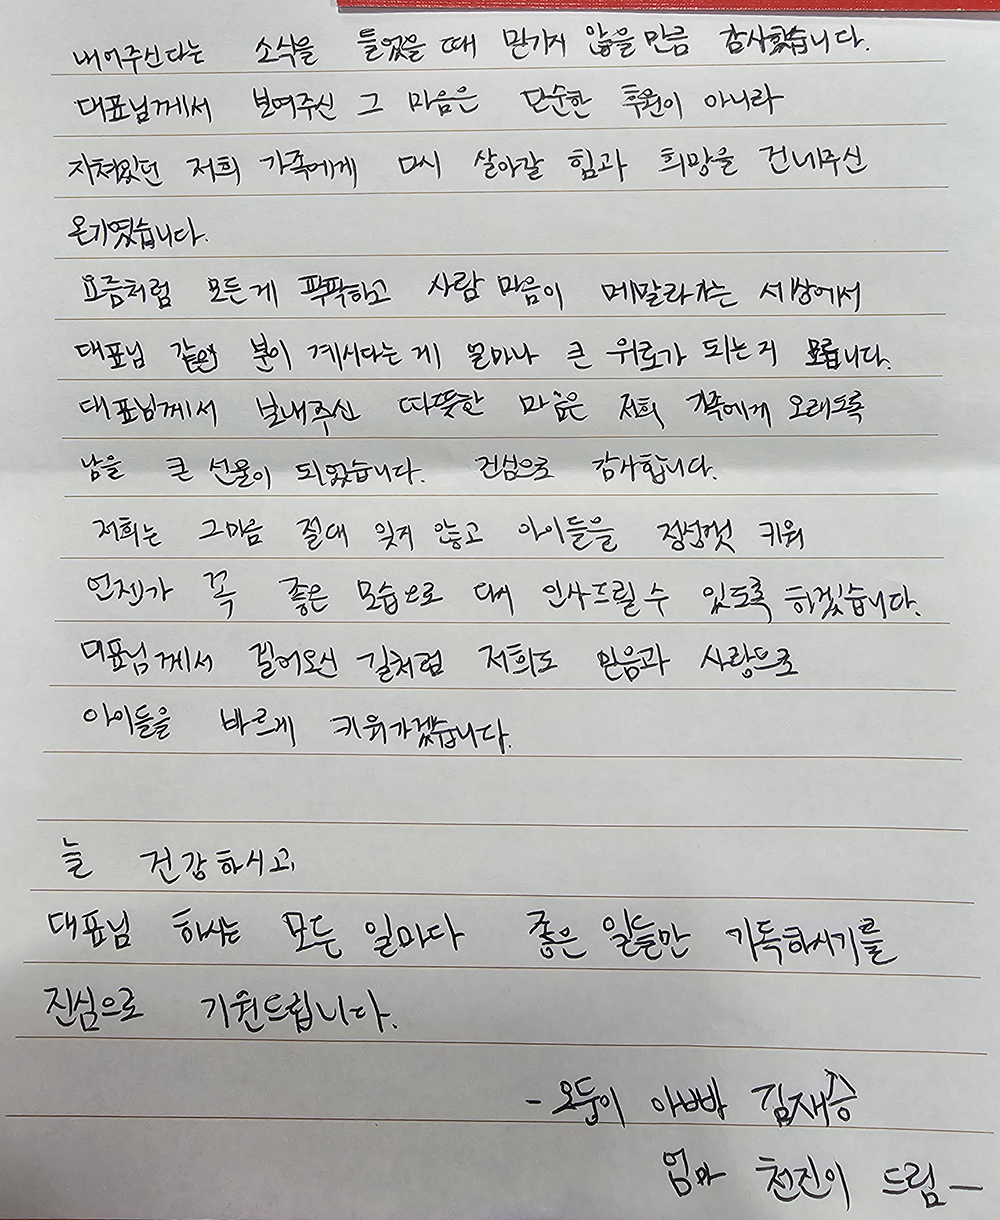 내어주신다는 소식을 들었을 때 믿기지 않을만큼 감사했습니다.
대표님께서 보여주신 그 마음은 단순한 후원이 아니라
지쳐있던 저희 가족에게 다시 살아갈 힘과 희망을 건네주신
온기였습니다.
요즘처럼 모든게 팍팍하고 사람 마음이 메말라가는 세상에서
대표님 같은 분이 계시다는게 얼마나 큰 위로가 되는지 모릅니다.
대표님께서 보내주신 따뜻한 마음은 저희 가족에게 오래도록
남을 큰 선물이 되었습니다. 진심으로 감사합니다.
저희는 그마음 절대 잊지 않고 아이들을 정성껏 키워
언젠가 꼭 좋은 모습으로 다시 인사드릴 수 있도록 하겠습니다.
대표님께서 걸어오신 길처럼 저희도 믿음과 사랑으로
아이들을 바르게 키워가겠습니다.
늘 건강하시고,
대표님 하시는 모든 일마다 좋은 일들만 가득하시기를
진심으로 기원드립니다.
- 오둥이 아빠 김재승
엄마 천진이 드림 -